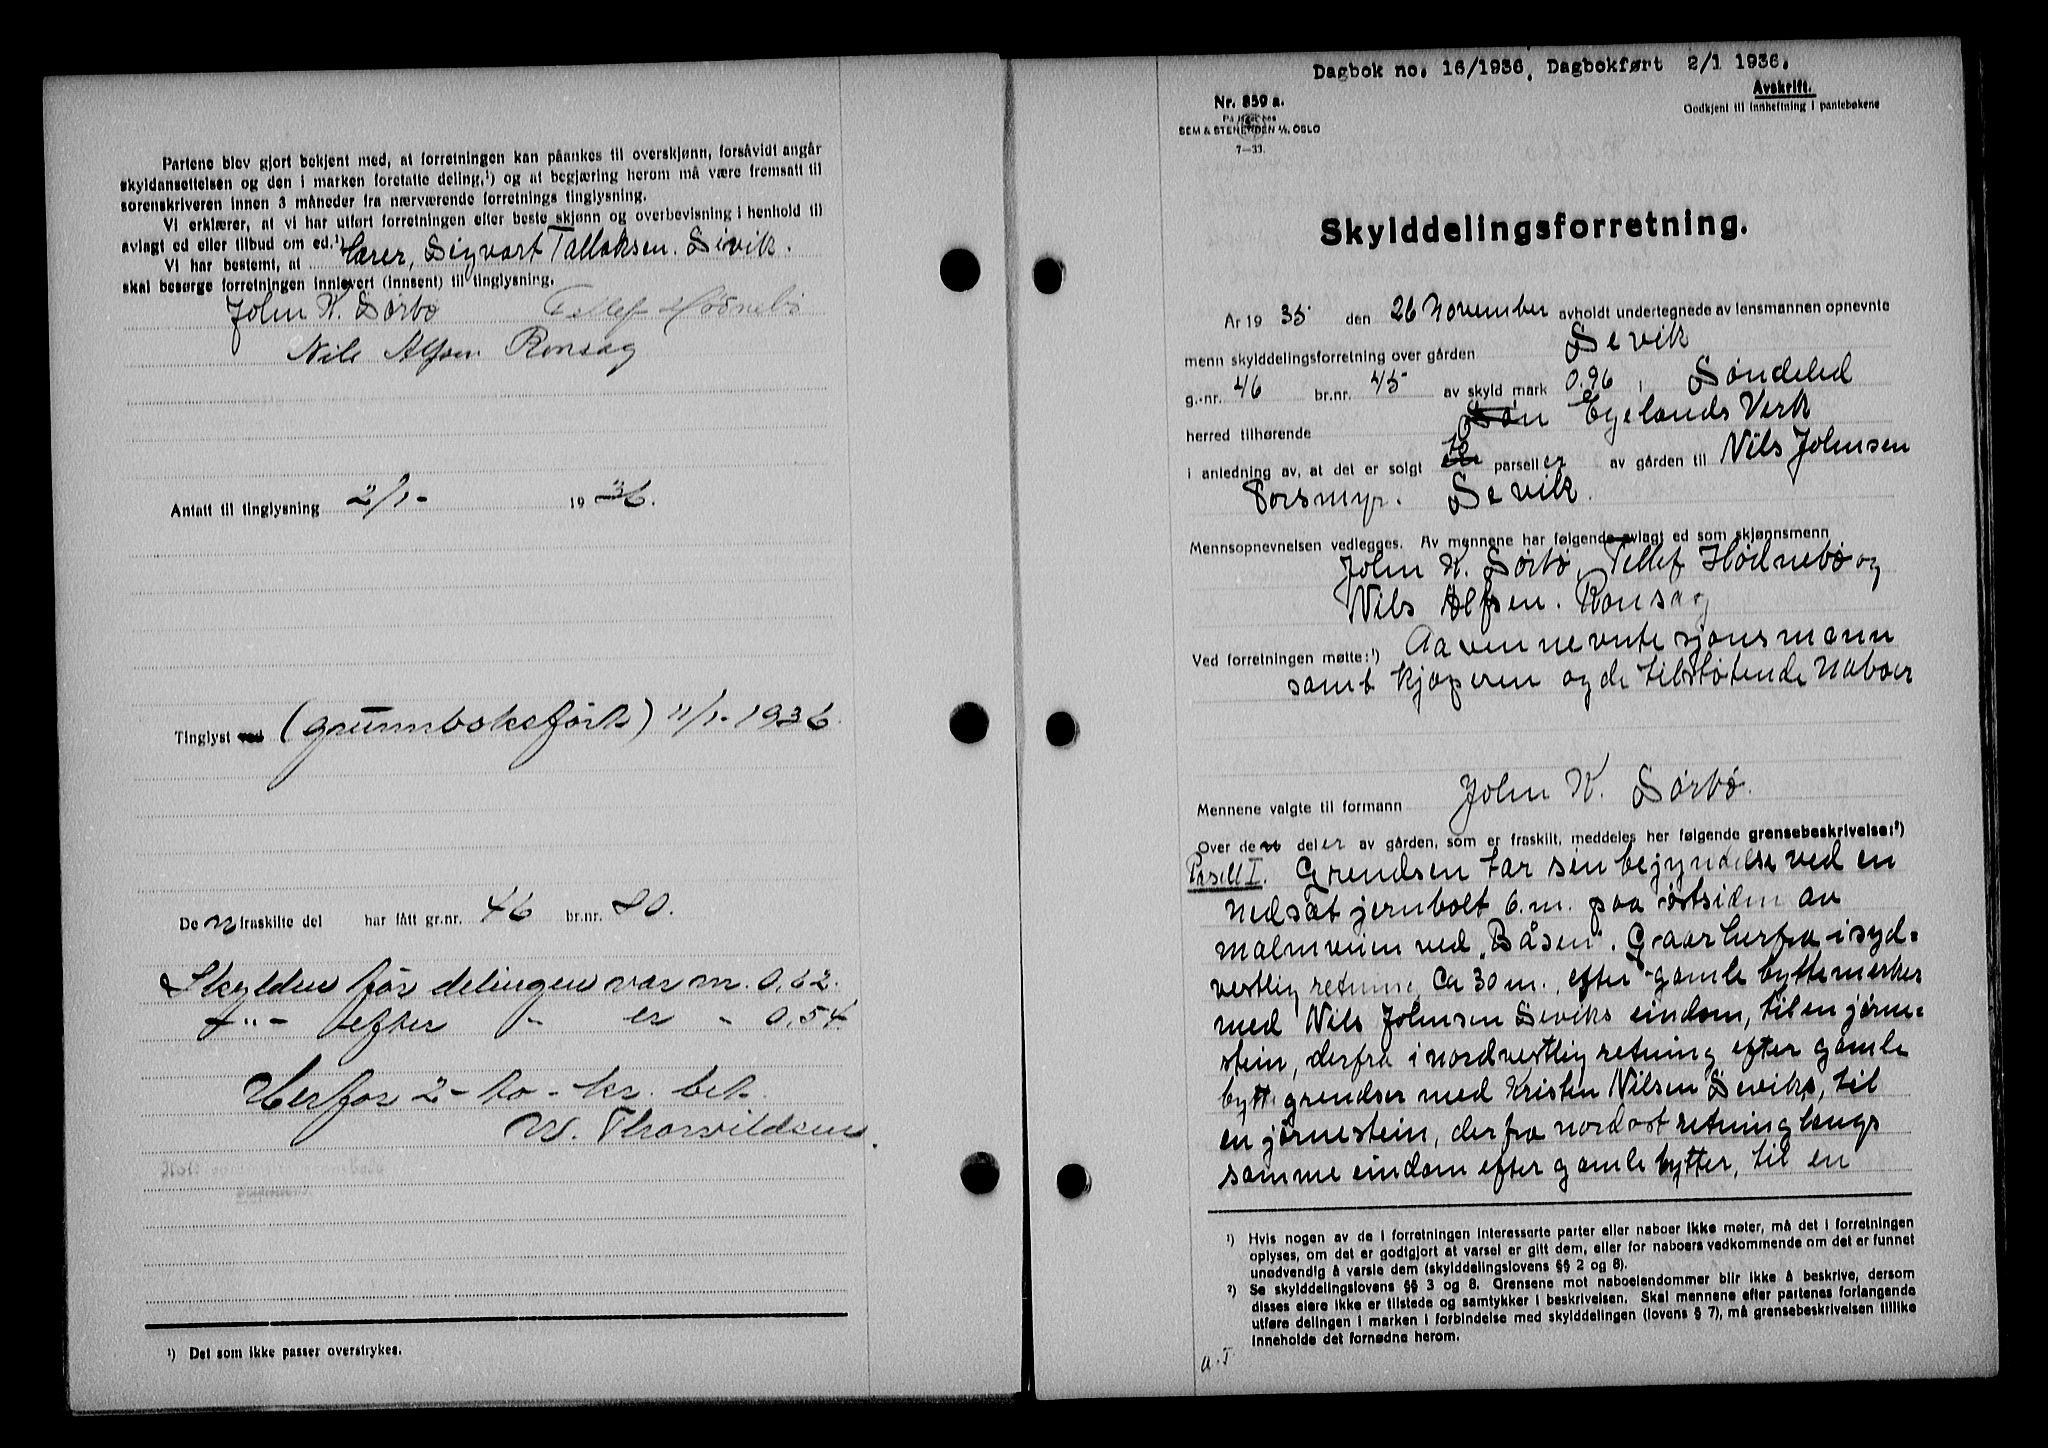 Partene blev gjort bekjent med, at forretningen kan påankes til overskjønn, forsåvidt angår
skyldansettelsen og den i marken foretatte deling,¹) og at begjæring herom må være fremsatt til
sorenskriveren innen 3 måneder fra nærværende forretnings tinglysning.
Vi erklærer, at vi har utført forretningen efter beste skjønn og overbevisning i henhold til
avlagt ed eller tilbud om ed.¹)
Vi har bestemt, at Herer, Sigvart Tallaksen. Sivik.
skal besørge forretningen innlevert (innsent) til tinglysning.
John K. Sørbø Tellef Hødnebø
Nils Alfsen Ronsag
Antatt til tinglysning 2/1- 1936.
Tinglyst ved (grunnboksført) 11/1-1936.
De n fraskilte del har fått gr.nr. 46 br.nr. 80.
Skylden før delingen var m. 0,62.
-"- efter - er - 0,54.
Herfor 2-to-kr. bet.
W. Thorvildsen.
¹) Det som ikke passer overstrykes.
Dagbok no. 16/1936, Dagbokført 2/1 1936.
Avskrift.
Nr. 859 a.
Godkjent til innheftning i pantebøkene
På lager hos
SEM & STENERSEN A/S OSLO
7—33.
Skylddelingsforretning.
År 1935 den 26 November avholdt undertegnede av lensmannen opnevnte
menn skylddelingsforretning over gården Sevik
g.-nr. 46 br.nr. 45 av skyld mark 0.96 i Søndeled
herred tilhørende Søn Egelands Verk
i anledning av, at det er solgt en 10 parseller av gården til Nils Johnsen
Torsmyr. Sevik.
Mennsopnevnelsen vedlegges. Av mennene har følgende avlagt ed som skjønnsmenn
John K. Sørbø, Tellef Hødnebø og
Nils Alfsen. Ronsag
Ved forretningen møtte:¹) Aavennevnte sjønsmænn
samt kjøperen og de tilstøtende naboer
Mennene valgte til formann John K. Sørbø.
Over den deler av gården, som er fraskilt, meddeles her følgende grensebeskrivelse:²)
Parsell I. Grendsen tar sin begyndelse ved en
nedsæt jernbolt 6.m. paa østsiden av
malmveien ved "Båsen". Gaar herfra i syd=
vestlig retning ca 30 m., efter gamle byttemerker
med Nils Johnsen Seviks eindom, til en jørne=
stein, derfra i nordvestlig retning efter gamle
bytt. grendser med Kristen Nilsen Seviks, til
en jørnestein, derfra nordøst retning langs
samme eindom efter gamle bytter, til en
¹) Hvis nogen av de i forretningen interesserte parter eller naboer ikke møter, må det i forretningen
oplyses, om det er godtgjort at varsel er gitt dem, eller for naboers vedkommende om det er funnet
unødvendig å varsle dem (skylddelingslovens §§ 2 og 8).
²) Se skylddelingslovens §§ 3 og 8. Grensene mot naboeiendommer blir ikke å beskrive, dersom
disses eiere ikke er tilstede og samtykker i beskrivelsen. Skal mennene efter partenes forlangende
utføre delingen i marken i forbindelse med skylddelingen (lovens § 7), må grensebeskrivelsen tillike
inneholde det fornødne herom.